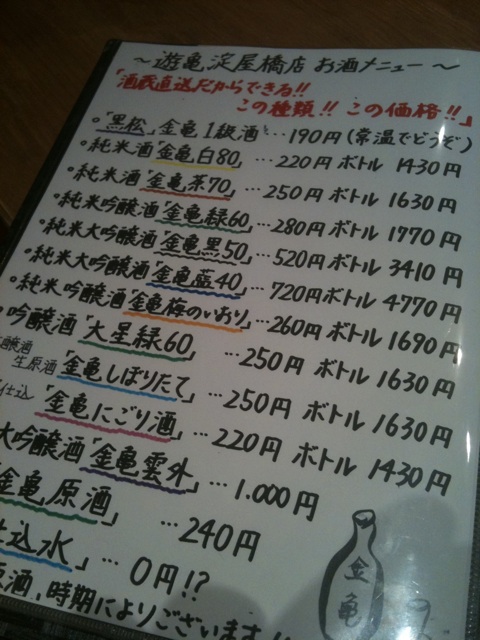 ～遊亀 淀屋橋店 お酒メニュー～
「酒蔵直送だからできる!!
この種類!! この価格!!」
・「黒松」金亀1級酒 … 190円(常温でどうぞ)
・純米酒「金亀白80」 … 220円 ボトル 1430円
・純米酒「金亀茶70」 … 250円 ボトル 1630円
・純米吟醸酒「金亀緑60」 … 280円 ボトル 1770円
・純米大吟醸酒「金亀黒50」 … 520円 ボトル 3410円
・純米大吟醸酒「金亀藍40」 … 720円 ボトル 4770円
・純米吟醸酒「金亀梅のいおり」 … 260円 ボトル 1690円
吟醸酒「大星緑60」 … 250円 ボトル 1630円
醸酒
生原酒「金亀しぼりたて」 … 250円 ボトル 1630円
仕込「金亀にごり酒」 … 220円 ボトル 1430円
大吟醸酒「金亀雲外」 … 1.000円
金亀原酒」 … 240円
仕込水」 … 0円!?
原酒、時期によりございます!!
金亀